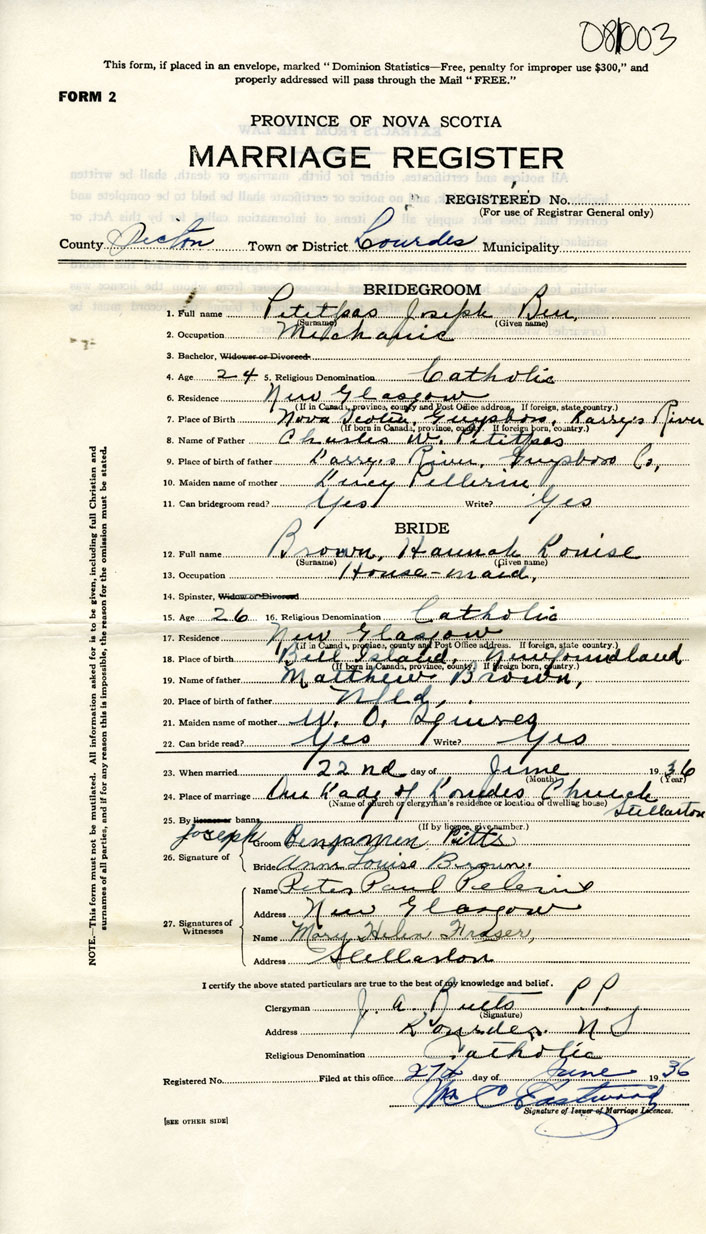 081003
This form, if placed in an envelope, marked "Dominion Statistics—Free, penalty for improper use $300," and
properly addressed will pass through the Mail "FREE."
FORM 2
PROVINCE OF NOVA SCOTIA
MARRIAGE REGISTER
REGISTERED No.
(For use of Registrar General only)
County Pictou Town or District Lourdes Municipality
BRIDEGROOM
1. Full name Petitpas Joseph Ben,
(Surname) (Given name)
2. Occupation Mechanic
3. Bachelor, Widower or Divorced
4. Age 24 5. Religious Denomination Catholic
6. Residence New Glasgow
(If in Canada, province, county and Post Office address. If foreign, state country.)
7. Place of Birth Nova Scotia, Guysboro, Larry's River
(If born in Canada, province, county. If foreign born, country.)
8. Name of Father Charles W. Petitpas
9. Place of birth of father Larry's River, Guysboro Co,
10. Maiden name of mother Lucy Pellerin
11. Can bridegroom read? Yes Write? Yes
BRIDE
12. Full name Brown, Hannah Louise
(Surname) (Given name)
13. Occupation House-maid,
14. Spinster, Widow or Divorced
15. Age 26 16. Religious Denomination Catholic
17. Residence New Glasgow
(If in Canada, province, county and Post Office address. If foreign, state country.)
18. Place of birth Bell Island, Newfoundland
(If born in Canada, province, county. If foreign born, country.)
19. Name of father Matthew Brown,
20. Place of birth of father Nfld,
21. Maiden name of mother
22. Can bride read? Yes Write? Yes
23. When married 22nd day of June 1936
(Month) (Year)
24. Place of marriage Our Lady of Lourdes Church
(Name of church or clergyman's residence or location of dwelling house) Stellarton
25. By licence or banns
(If by licence, give number.)
26. Signature of Groom Joseph Benjamen Pitts
Bride Ann Louise Brown.
27. Signatures of Witnesses
Name Peter Paul
Address New Glasgow
Name Mary Helen Fraser,
Address Stellarton
I certify the above stated particulars are true to the best of my knowledge and belief.
Clergyman J. A. Butts PP
(Signature)
Address Lourdes. NS
Religious Denomination Catholic
Registered No. Filed at this office 27th day of June 1936
Wm C Eastwood
Signature of Issuer of Marriage Licences.
[SEE OTHER SIDE]
NOTE.—This form must not be mutilated. All information asked for is to be given, including full Christian and
surnames of all parties, and if for any reason this is impossible, the reason for the omission must be stated.